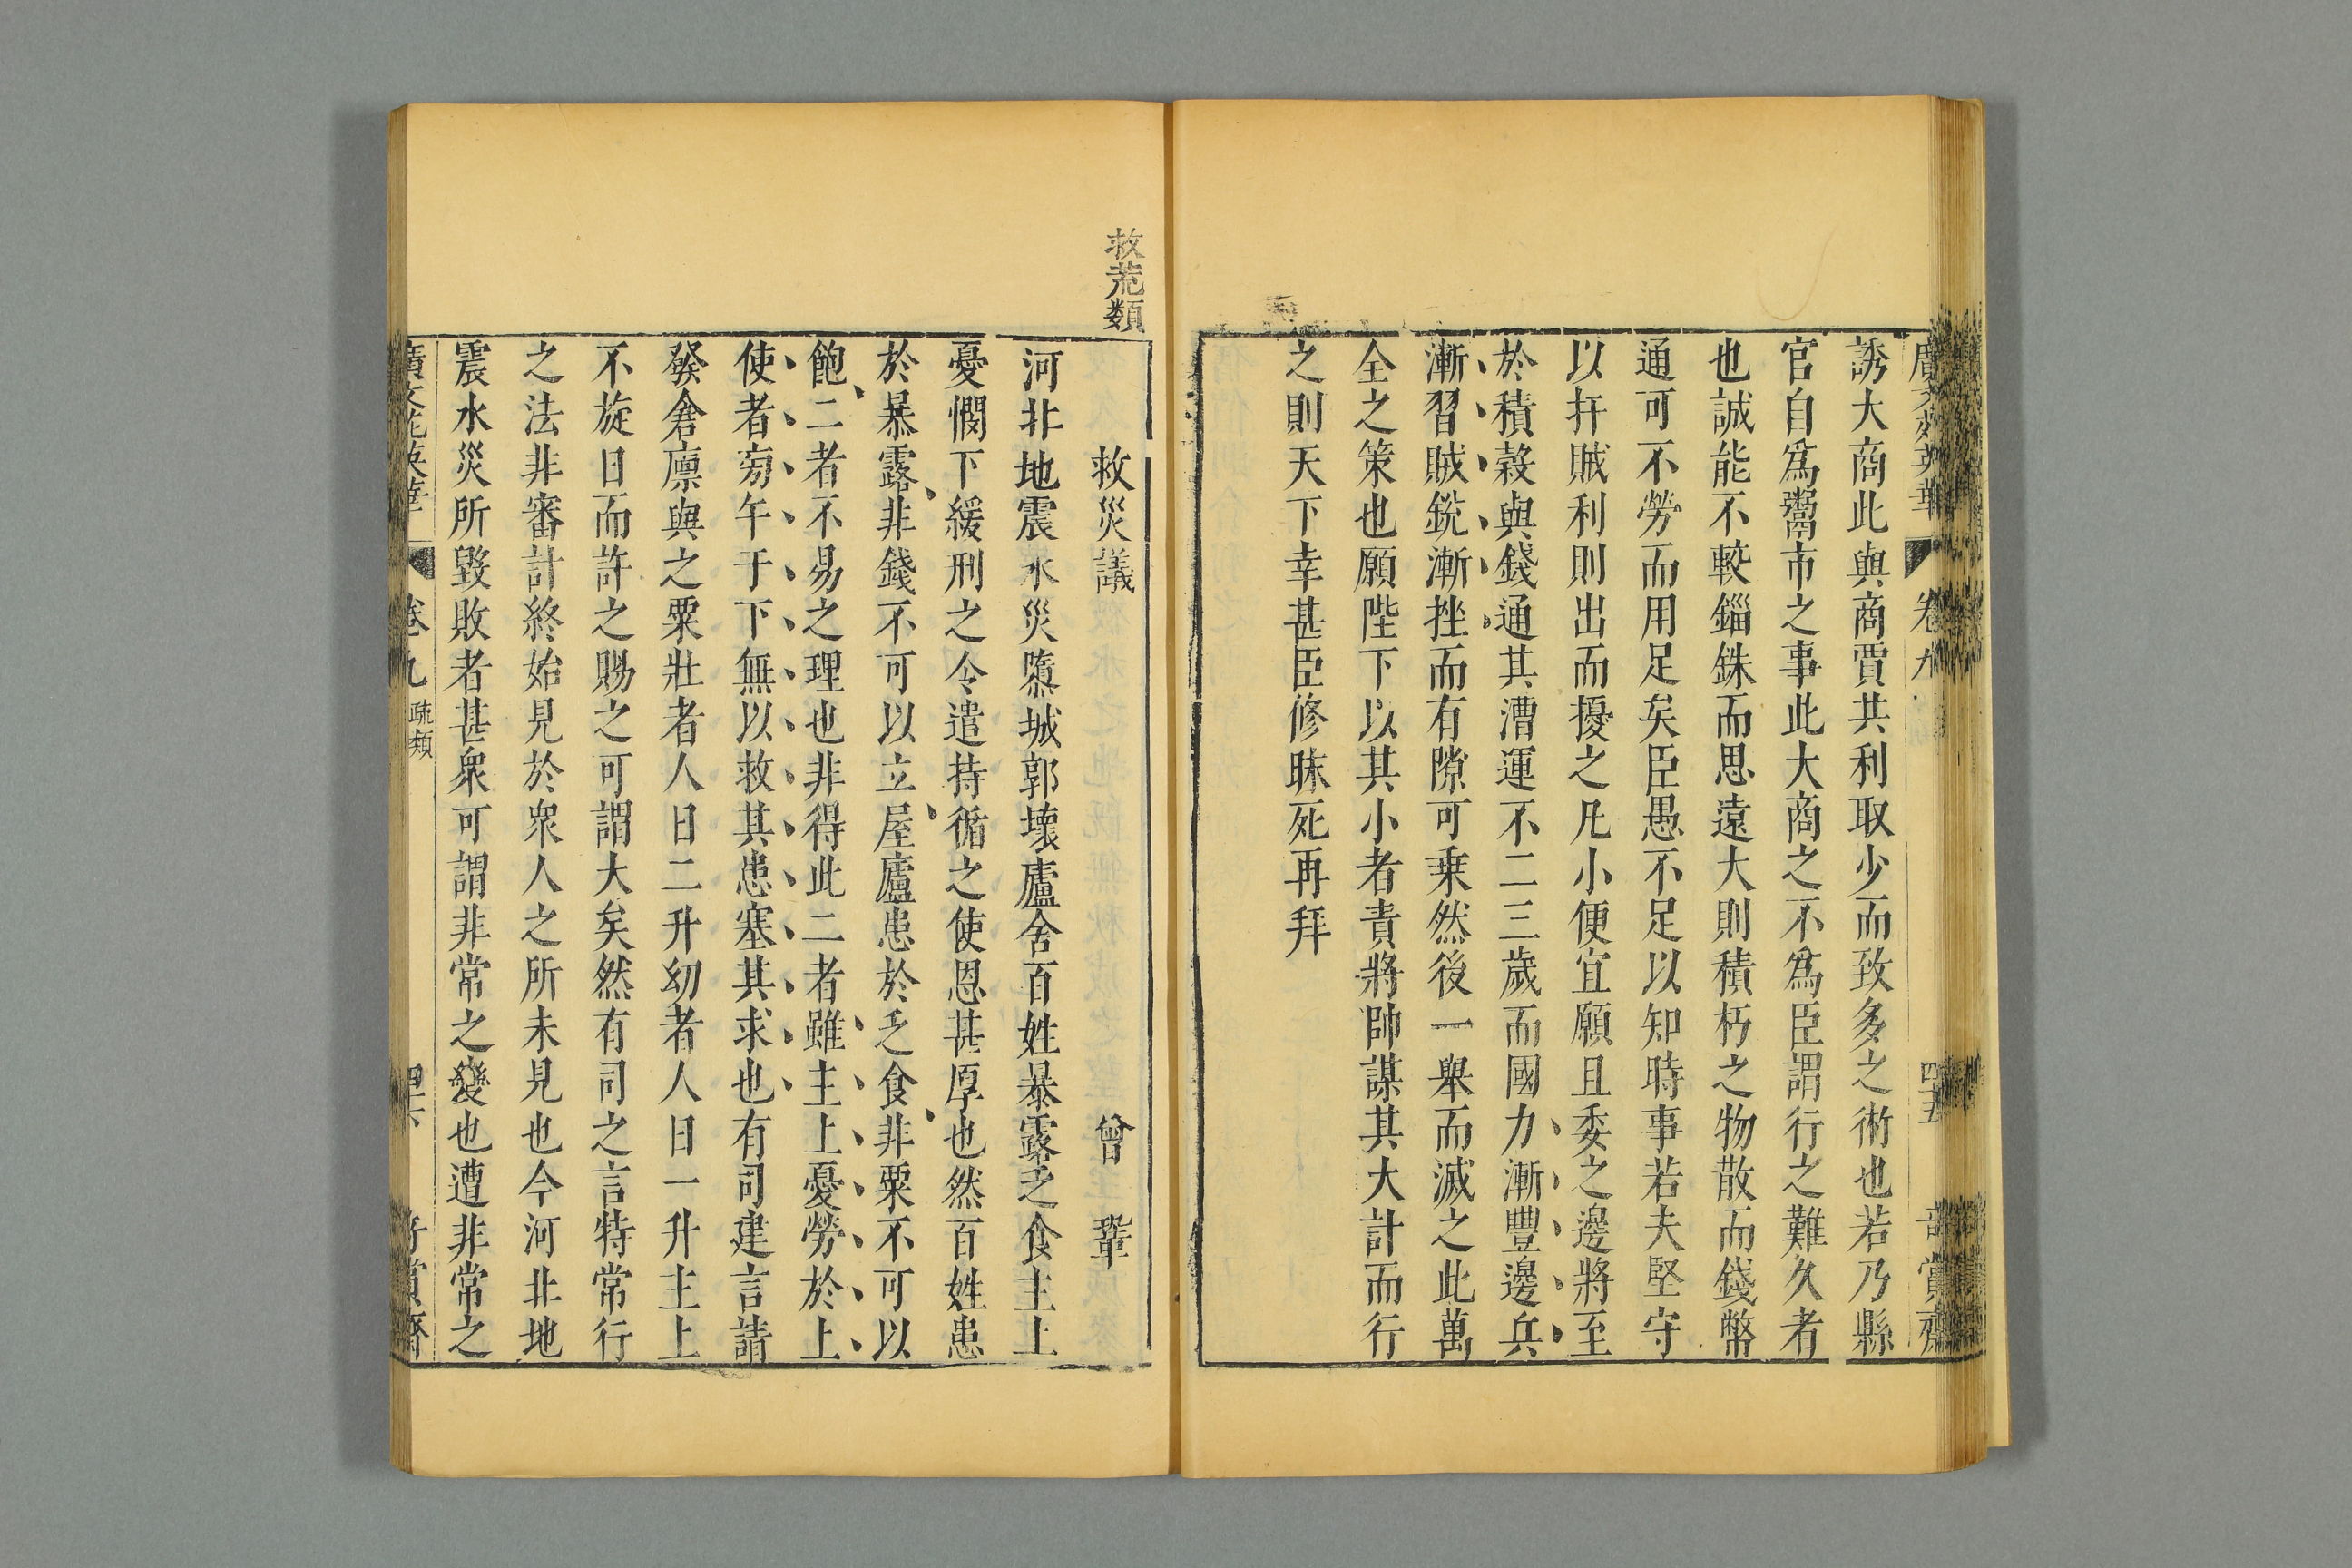 廣文苑英華 卷九 四十五 奇賞齋
誘大商此與商賈共利取少而致多之術也若乃縣
官自爲鬻市之事此大商之不爲臣謂行之難久者
也誠能不較錙銖而思遠大則積朽之物散而錢幣
通可不勞而用足矣臣愚不足以知時事若夫堅守
以扞賊利則出而擾之凡小便宜願且委之邊將至
於積穀與錢通其漕運不二三歲而國力漸豐邊兵
漸習賊銳漸挫而有隙可乗然後一舉而滅之此萬
全之策也願陛下以其小者責將帥謀其大計而行
之則天下幸甚臣修昧死再拜
救荒類
救災議 曾鞏
河北地震水災隳城郭壞廬舍百姓暴露乏食主上
憂憫下緩刑之令遣持循之使恩甚厚也然百姓患
於暴露非錢不可以立屋廬患於乏食非粟不可以
飽二者不易之理也非得此二者雖主上憂勞於上
使者旁午于下無以救其患塞其求也有司建言請
發倉廩與之粟壯者人日二升幼者人日一升主上
不旋日而許之賜之可謂大矣然有司之言特常行
之法非審計終始見於衆人之所未見也今河北地
震水災所毀敗者甚衆可謂非常之變也遭非常之
廣文苑英華 卷九 疏類 四十六 奇賞齋